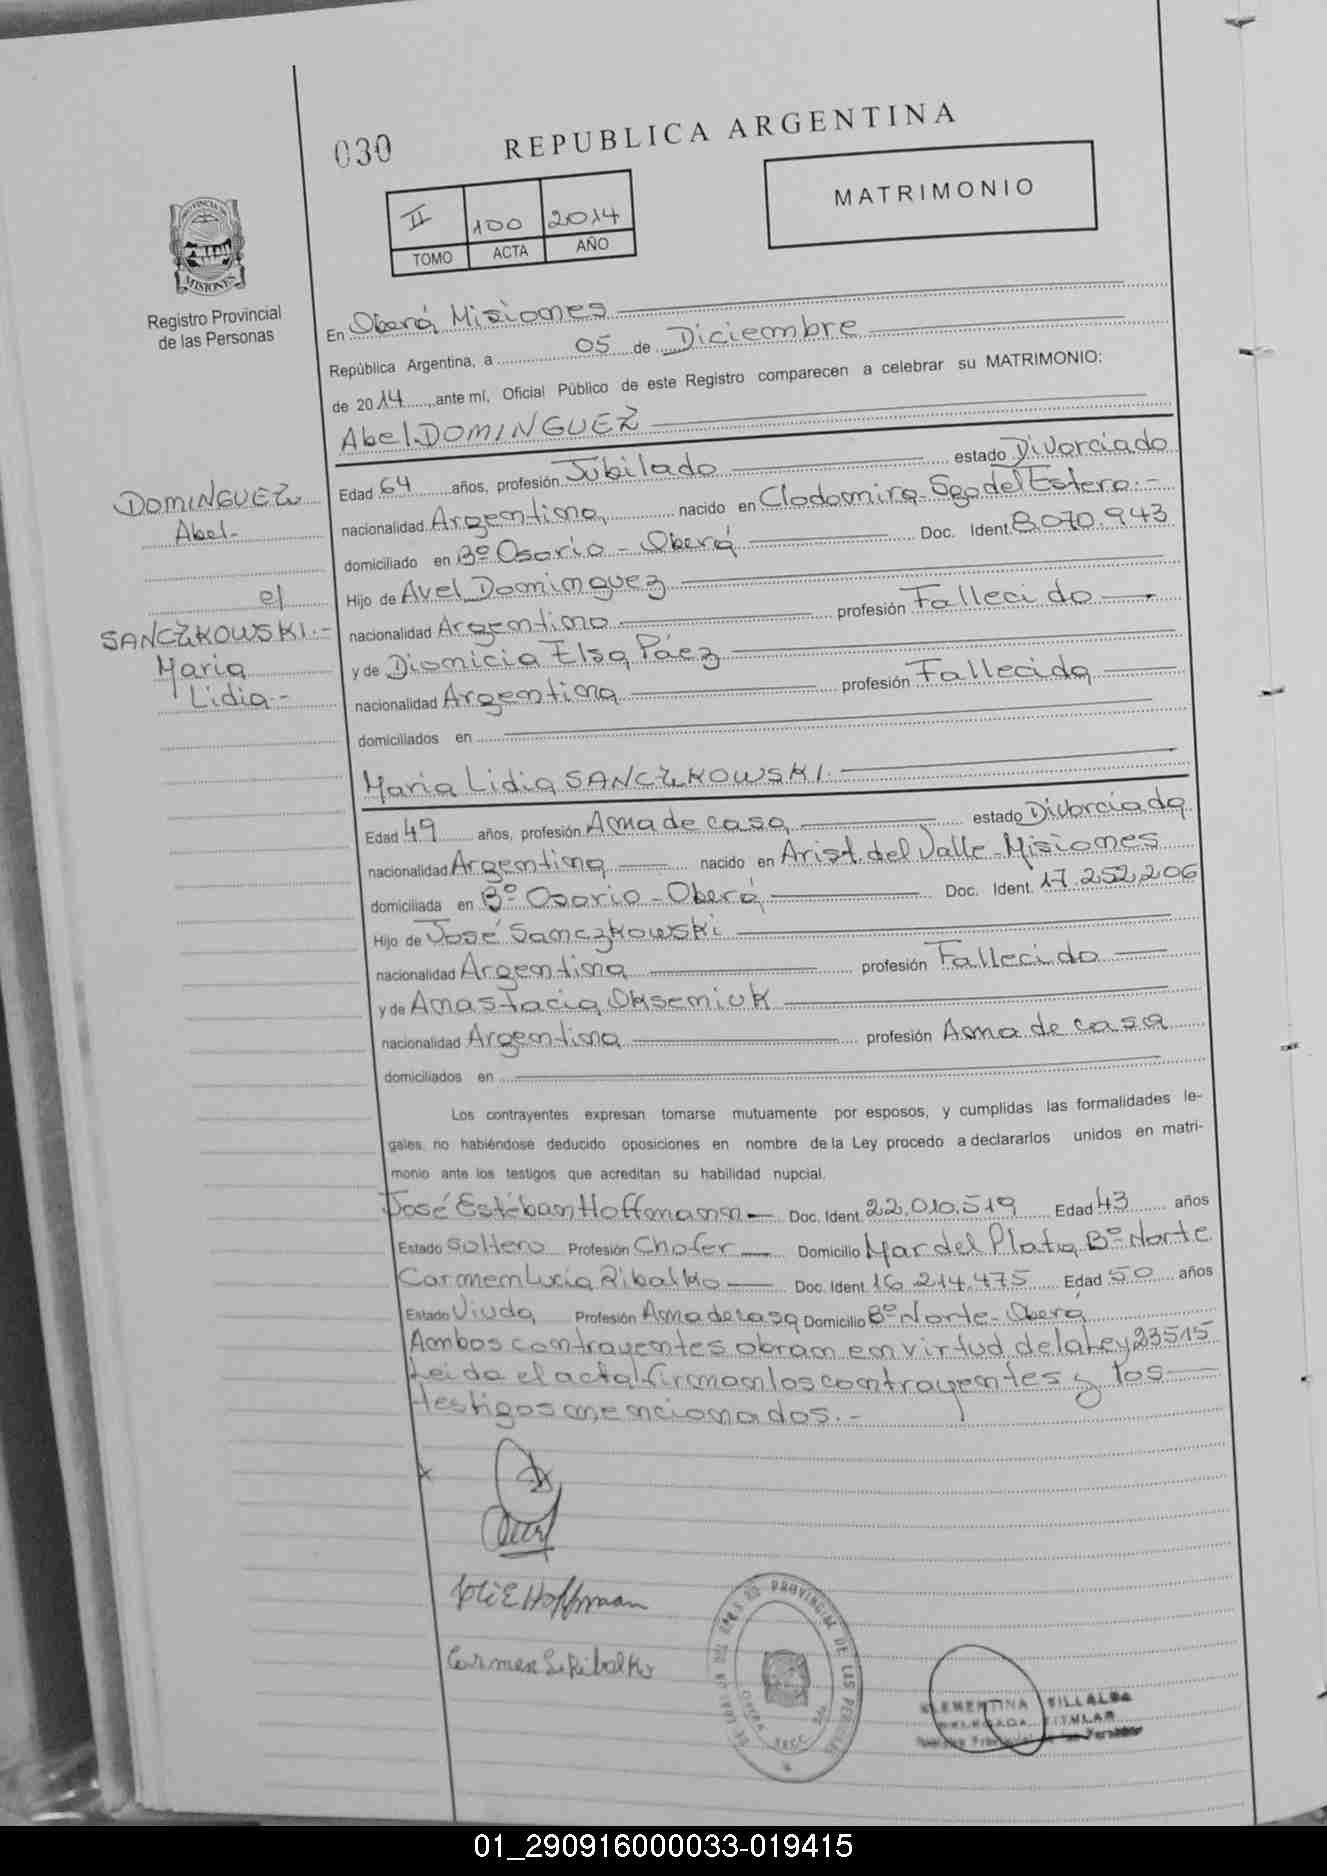 030
REPUBLICA ARGENTINA
II 100 2014
TOMO ACTA AÑO
MATRIMONIO
MISIONES
Registro Provincial
de las Personas
En Oberá Misiones
República Argentina, a 05 de Diciembre
de 2014, ante mí, Oficial Público de este Registro comparecen a celebrar su MATRIMONIO:
Abel DOMINGUEZ
Edad 64 años, profesión Jubilado estado Divorciado
nacionalidad Argentina nacido en Clodomira-Sgo del Estero.-
domiciliado en Bº Osorio - Oberá Doc. Ident. 8.070.943
Hijo de Avel Dominguez
nacionalidad Argentino profesión Fallecido
y de Dionicia Elsa Páez
nacionalidad Argentina profesión Fallecida
domiciliados en
DOMINGUEZ
Abel-
c/
SANCZKOWSKI.-
Maria
Lidia.-
Maria Lidia SANCZKOWSKI.
Edad 49 años, profesión Ama de casa estado Divorciada
nacionalidad Argentina nacido en Arist. del Valle-Misiones
domiciliada en Bº Osorio - Oberá Doc. Ident. 17.252.206
Hijo de José Sanczkowski
nacionalidad Argentina profesión Fallecido
y de Anastacia Okseniuk
nacionalidad Argentina profesión Ama de casa
domiciliados en
Los contrayentes expresan tomarse mutuamente por esposos, y cumplidas las formalidades le-
gales, no habiéndose deducido oposiciones en nombre de la Ley procedo a declararlos unidos en matri-
monio ante los testigos que acreditan su habilidad nupcial.
José Estéban Hoffmann Doc. Ident. 22.010.519 Edad 43 años
Estado Soltero Profesión Chofer Domicilio Mar del Plata Bº Norte
Carmen Lucia Ribalko Doc. Ident. 16.214.475 Edad 50 años
Estado Viuda Profesión Ama de casa Domicilio Bº Norte-Oberá
Ambos contrayentes obran en virtud de la Ley 23515
Leida el acta firman los contrayentes y los
testigos mencionados.-
José E Hoffman
Carmen L. Ribalko
PROVINCIAL DE LAS PERSONAS
CLEMENTINA VILLALBA
DELEGADA TITULAR
Registro Provincial de las Personas
01_290916000033-019415